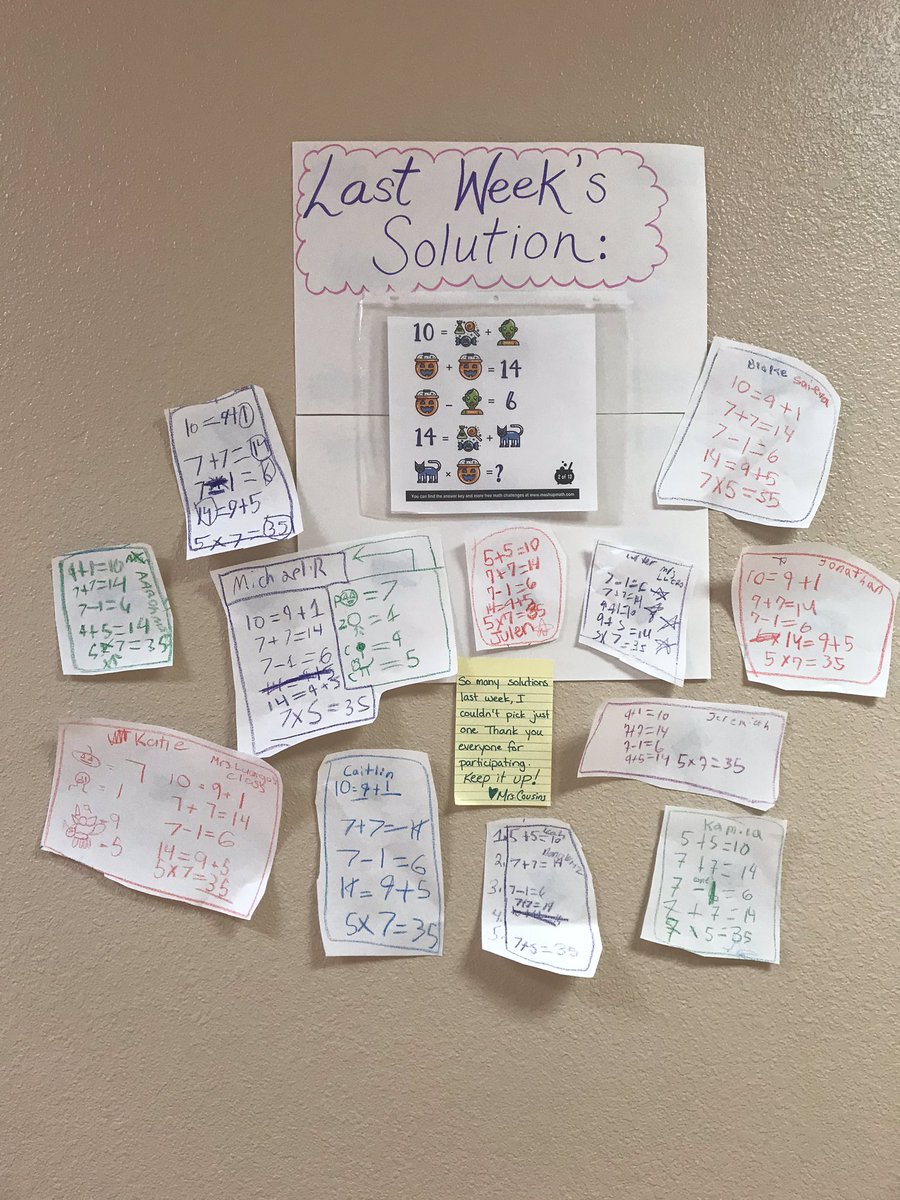 Last Week's
Solution:
10 = +
+ = 14
- = 6
14 = +
× = ?
2 of 13
You can find the answer key and more free math challenges at www.mashupmath.com
10=9+1
7+7=14
7-1=6
14=9+5
5×7=35
Blake
10=9+1
7+7=14
7-1=6
14=9+5
7×5=35
9+1=10
7+7=14
7-1=6
9+5=14
5×7=35
Michael R
10=9+1
7+7=14
7-1=6
14=9+5
7×5=35
=7
=1
=4
=5
5+5=10
7+7=14
7-1=6
14=9+5
5×7=35
Julen
7-1=6
7+7=14
9+1=10
9+5=14
5×7=35
Jonathan
10=9+1
9+7=14
7-1=6
14=9+5
5×7=35
So many solutions
last week, I
couldn't pick just
one. Thank you
everyone for
participating.
Keep it up!
♥Mrs.Cousins
Jeremiah
9+1=10
7+7=14
7-1=6
9+5=14 5×7=35
Katie
Mrs.
class
= 7
= 1
=9
=5
10=9+1
7+7=14
7-1=6
14=9+5
5×7=
35
Caitlin
10=9+1
7+7=14
7-1=6
14=9+5
5×7=35
1. 5+5=10
2. 7+7=14
3. 7-1=6
7+7=14
4.
5. 7+5=35
Kamila
5+5=10
7+7=14
7-1=6
7+7=14
7×5=35